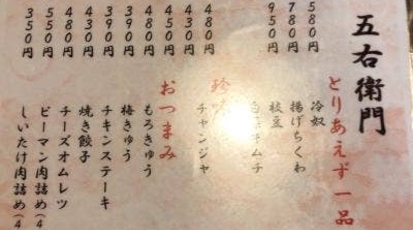 五右衛門
とりあえず一品
冷奴
580円
揚げちくわ
780円
枝豆
950円
キムチ
珍
チャンジャ
480円
430円
おつまみ
450円
もろきゅう
480円
梅きゅう
390円
チキンステーキ
390円
焼き餃子
430円
チーズオムレツ
480円
ピーマン肉詰め(4
550円
しいたけ肉詰め(4
350円